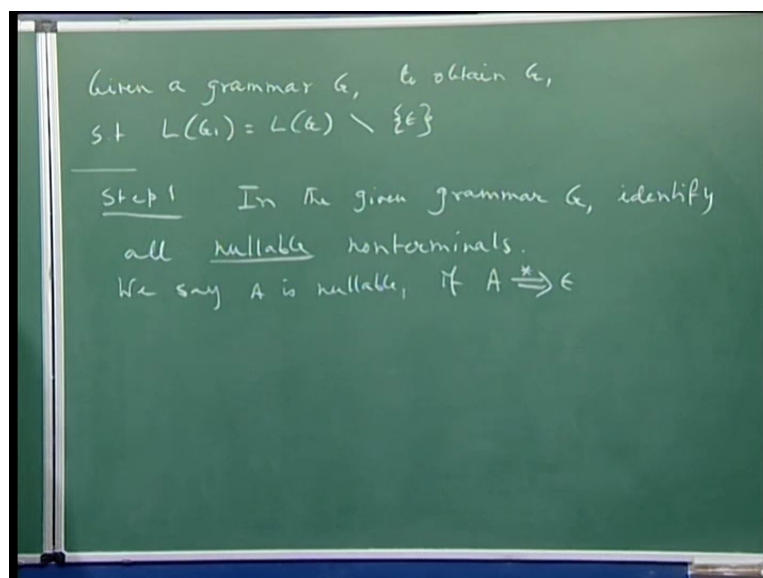 Given a grammar G, to obtain G,
s.t L(G1) = L(G) \ {ϵ}
Step 1 In the given grammar G, identify
all nullable nonterminals.
We say A is nullable, if A *⟹ ϵ